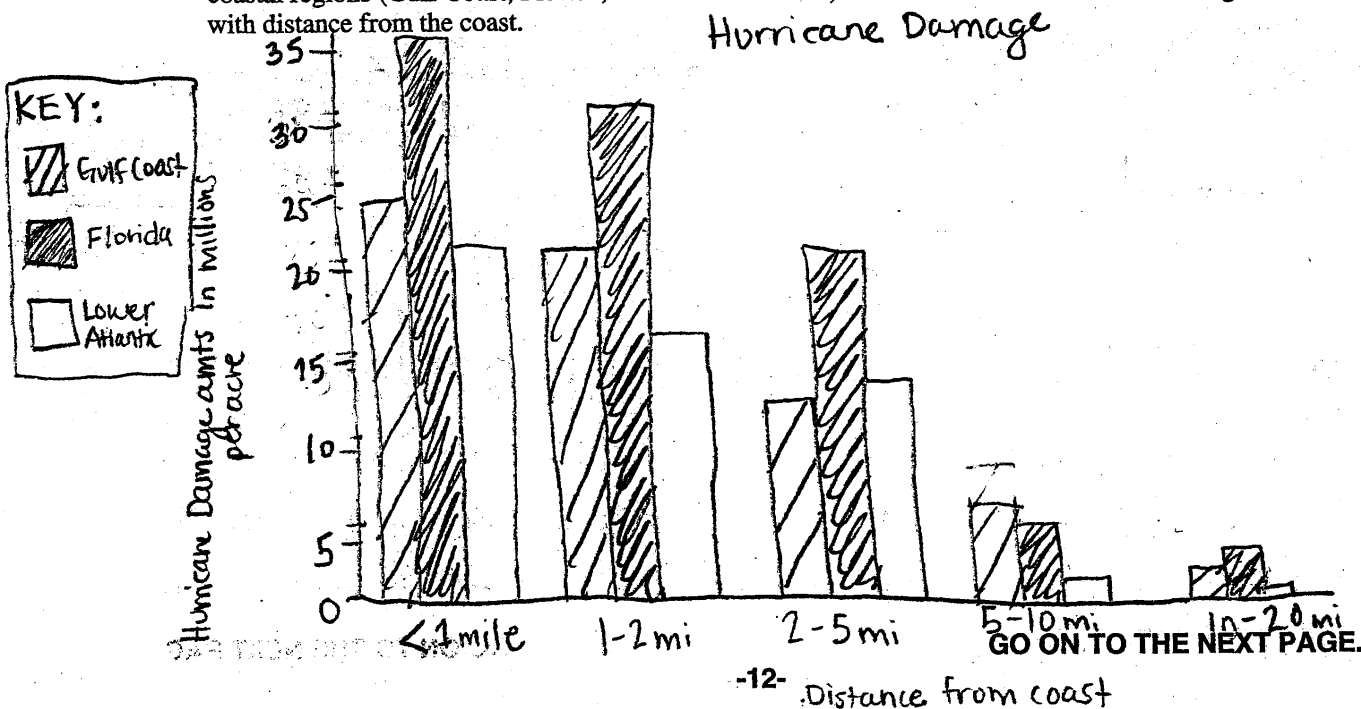 with distance from the coast.
Hurricane Damage
KEY:
Gulf Coast
Florida
Lower
Atlantic
Hurricane Damage amts in millions
per acre
35
30
25
20
15
10
5
0
<1 mile
1-2 mi
2-5 mi
5-10 mi
-20 mi
GO ON TO THE NEXT PAGE.
-12-
Distance from coast